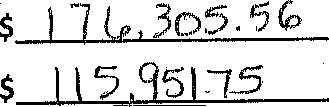 $ 176,305.56
$ 115,951.75